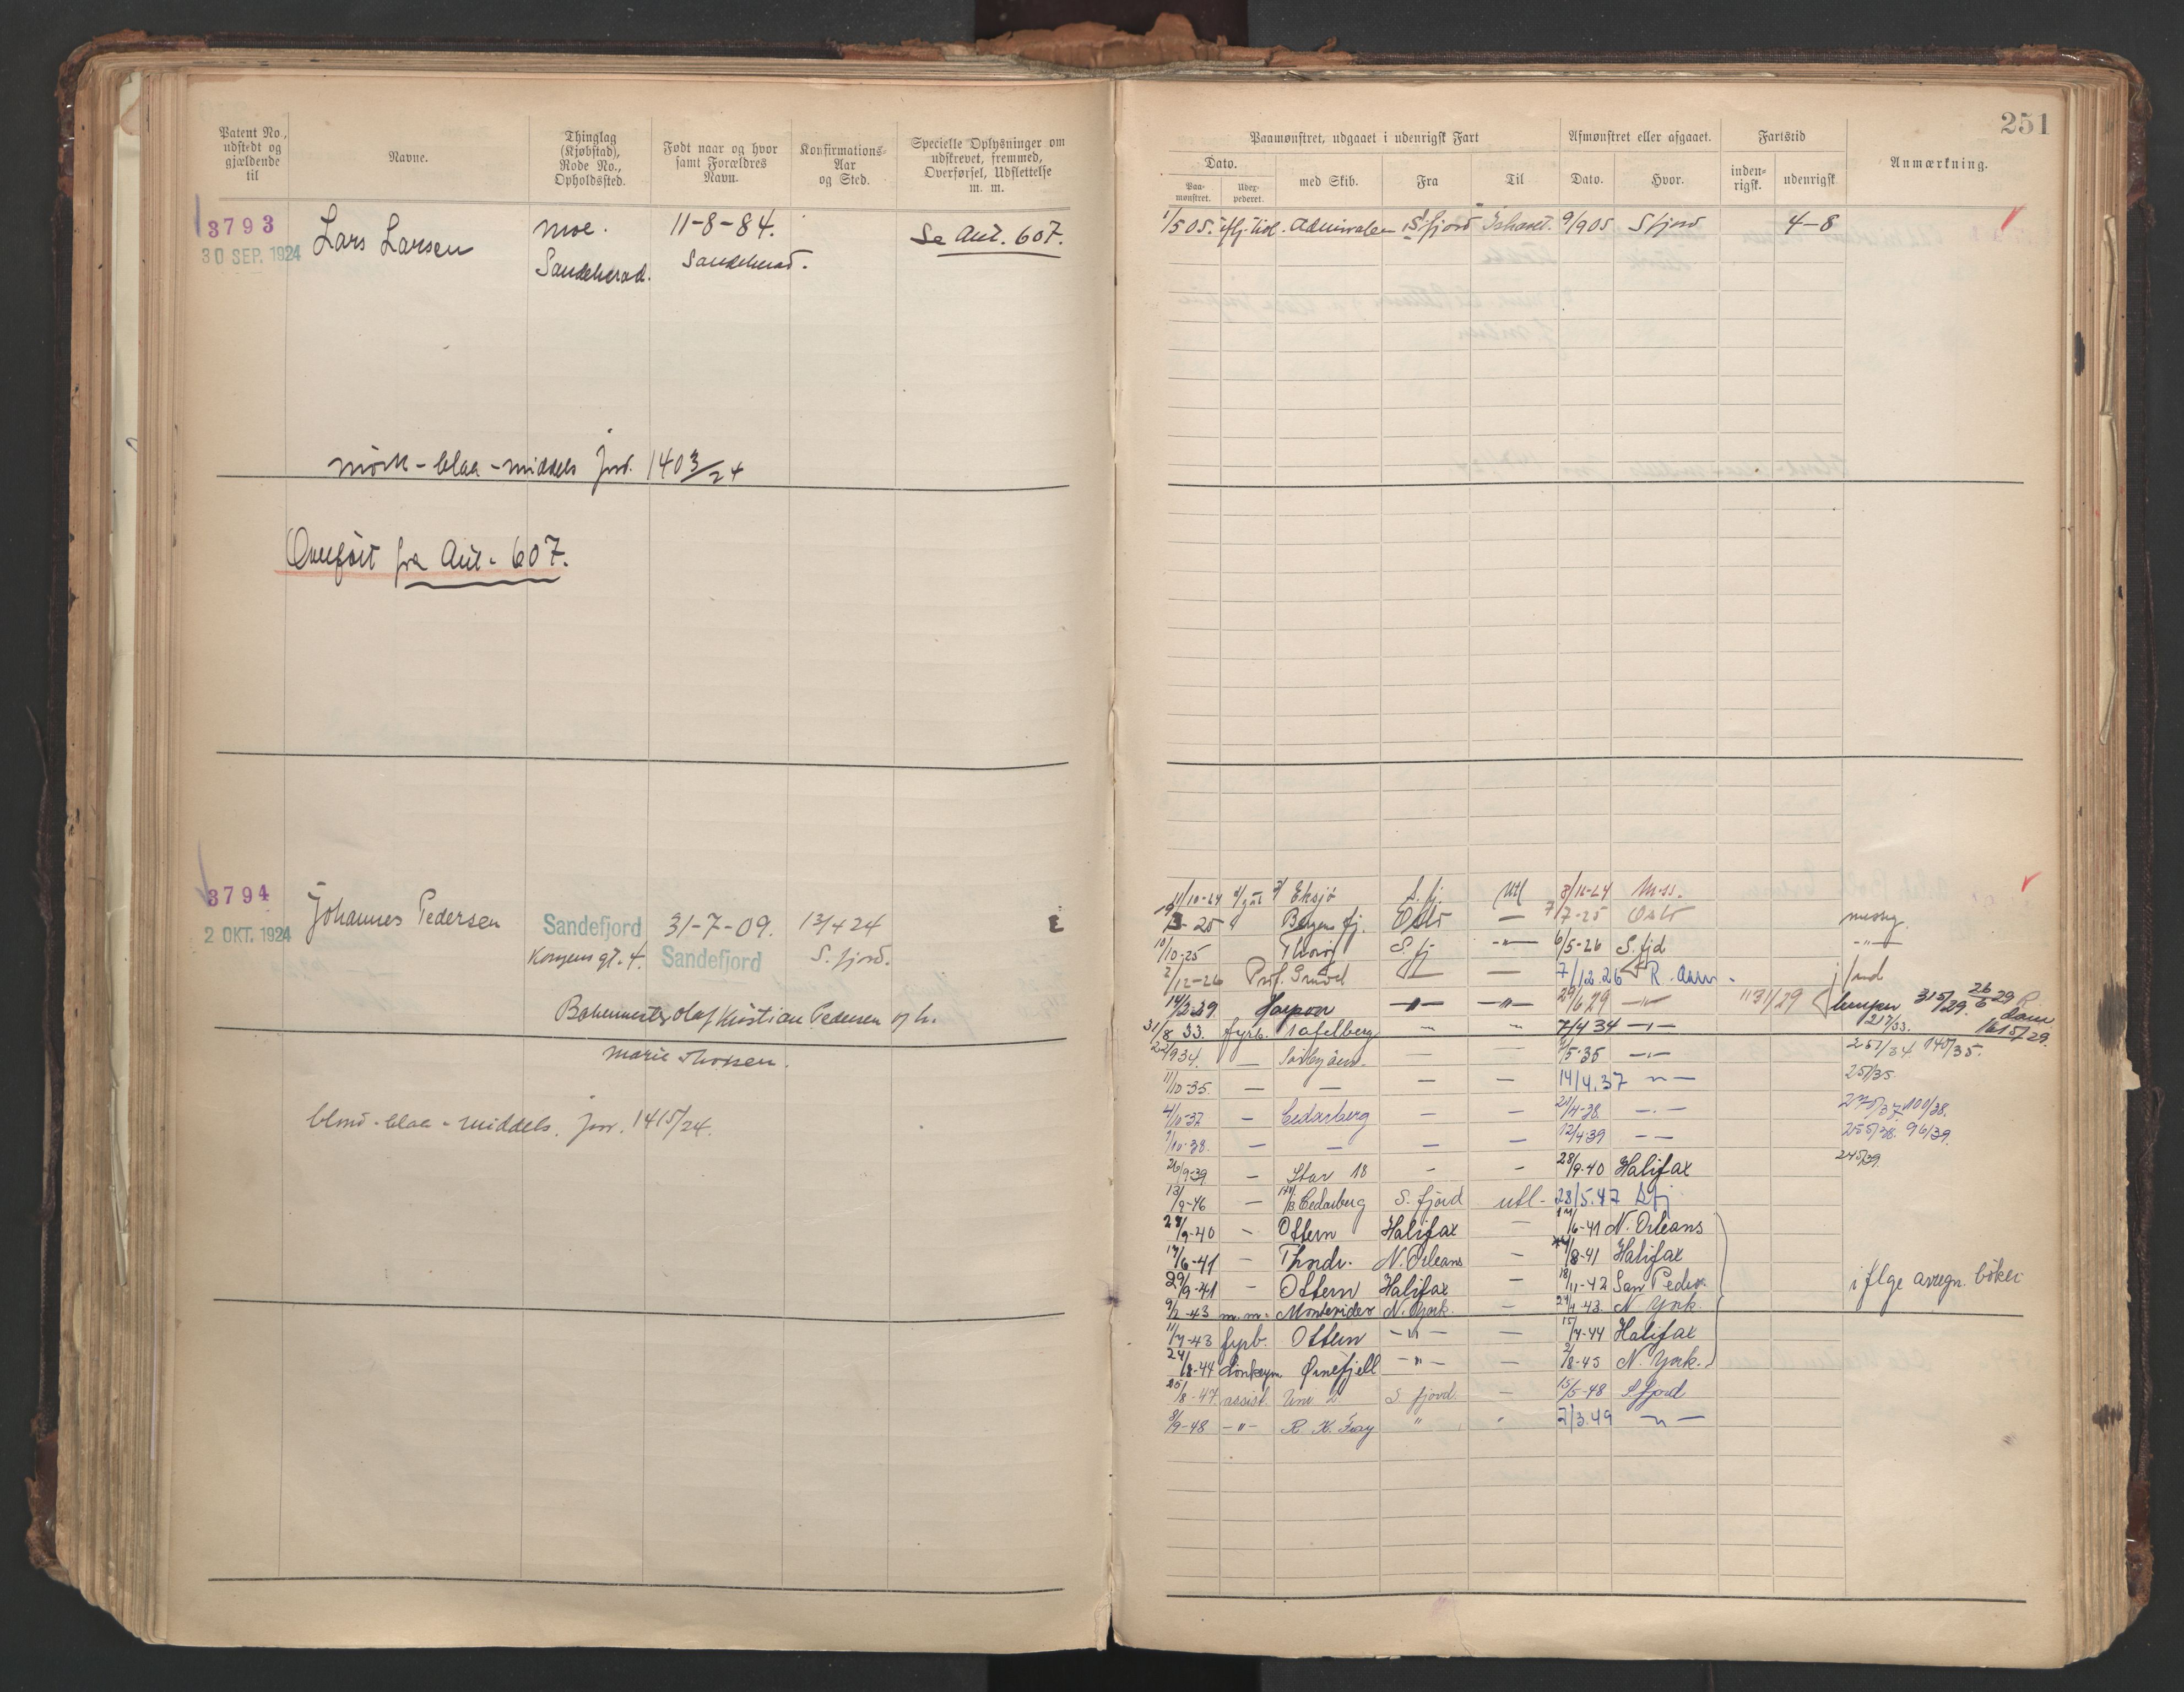 251
Patent No., udstedt og gjældende til
Navne.
Thinglag (Kjøbstad), Rode No., Opholdssted.
Født naar og hvor samt Forældres Navn.
Konfirmations-Aar og Sted.
Specielle Oplysninger om udskrevet, fremmed, Overførsel, Udslettelse m. m.
Paamønstret, udgaaet i udenrigsk Fart
Afmønstret eller afgaaet.
Fartstid
Anmærkning.
Dato.
Paa-mønstret.
med Skib.
Fra
Til
Dato.
Hvor.
inden-rigsk.
udenrigsk
3793
30 SEP. 1924
Lars Larsen
Moe.
Sandeherad.
11-8-84.
Sandeherad.
Se Ant. 607.
1/5 05. Admiralen S.fjord Ishavet. 9/9 05 Sfjord 4-8
mörk - blaa - middels Jnr. 1403/24
Overfört fra Ant. 607.
3794
2 OKT. 1924
Johannes Pedersen
Sandefjord
Kongens gt. 4.
31-7-09.
Sandefjord
13/4 24
S. fjord.
Olaf Kristian Pedersen og h.
Marie Thorsen.
blond - blaa - middels. Jnr. 1415/24.
11/10-24 Eksjø S. fj. Utl
Bergens fj. Oslo — 7/7-25 Oslo
10/10-25 Thorøy S. fj -"- 6/5-26 S. fjd -"-
2/12-26 Prof. Gruvel — — 7/12.26
Harpon -"- -"- 29/6 29 -"- 1131/29 lemper 315/29.
31/8 33. fyrb. Tafelberg — — 7/4 34 -"- 217/33.
22/9 34. — — — 5-35 -"- 257/34 140/35.
11/10-35. — — — — 14/4.37 -"- 251/35
4/10-37 — Cedarberg — — 21/4-38. -"- 275/37 100/38.
1/10-38. — — — — 12/4-39 — 255/38. 96/39.
26/9-39 — Star 18 - - 28/9-40 Halifax 245/39.
13/9-46 — Cedarberg S. fjord utl- 28/5.47 Sfj
28/9-40 - Ottern Halifax — 17/6-41 N. Orleans
17/6-41 — Thodr. N. Orleans - 8-41 Halifax
29/9-41 - Ottern Halifax — 18/11-42 San Pedro. iflge avregn. böker
9/2-43 m.m. Montevideo N. York. — 43. N. York.
11/7-43 fyrb. Ottern -"- — 15/7-44 Halifax
24/8-44 donkeym Ørnefjell -"- — 2/8-45 N. York.
25/8-47 assist. S fjord. — 15/5-48 Sfjord
8/9-48 -"- " " 2/3.49 -"-